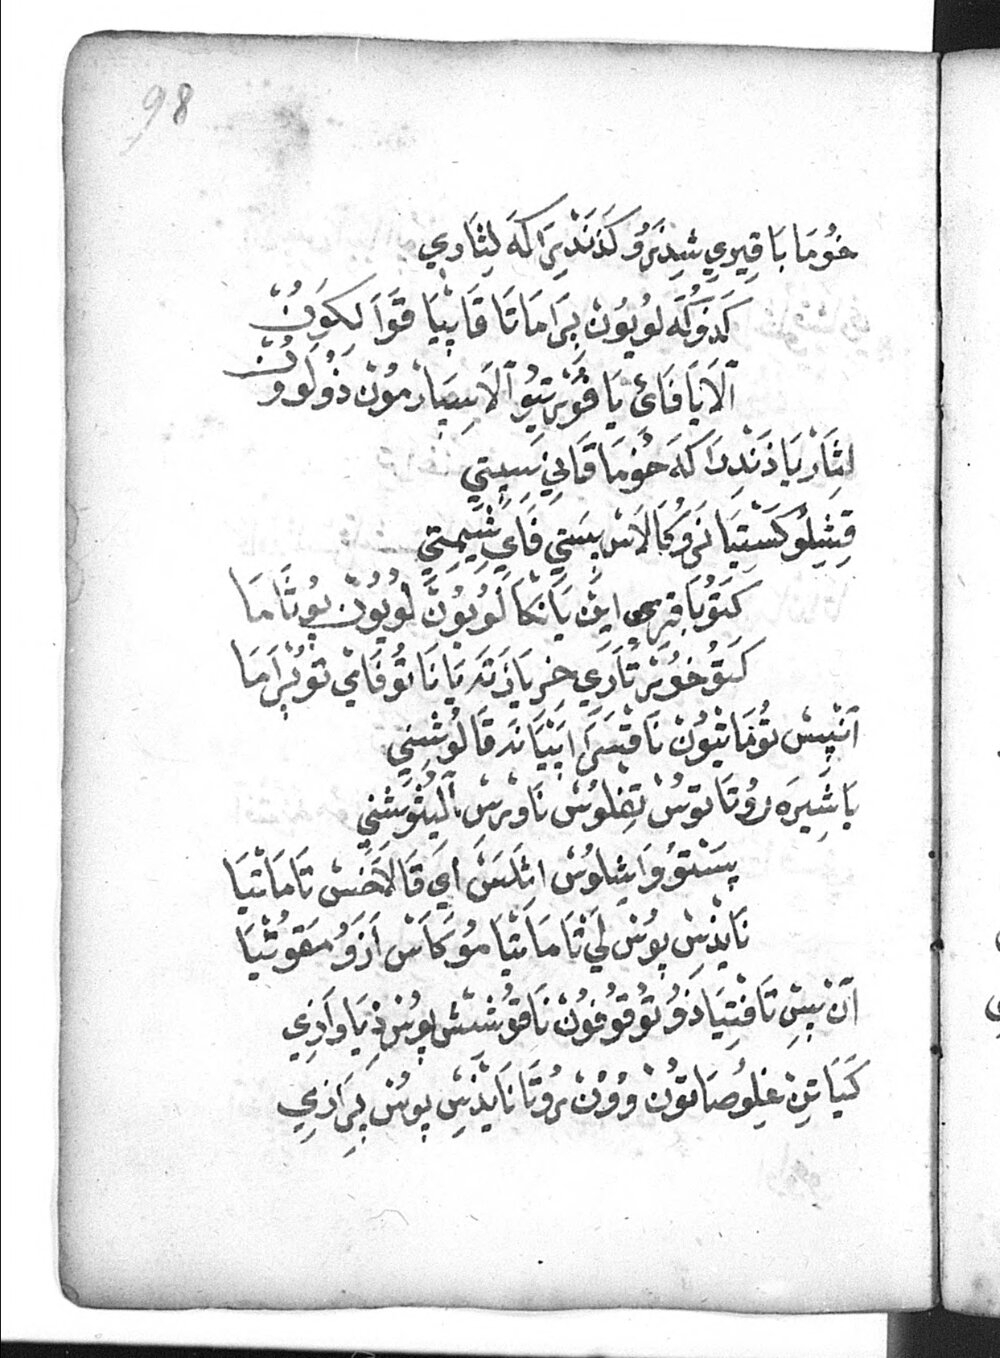 98
خُومَا بَاقِيرِي شِذَرُو كَذَنْدِرَا كَه لِثَارِي
كَذُوكَه لُويُونْ پِرَامَاتَا قَاپِيَا قَوَا لِكَوُنْ
اَلَايَافَائ يَا قُوْرِتيُو اَلَا سِيَارْمُونْ ذُولَوُونْ
لِثَارِيَا ذَنْدِرَا كَه خُومَا قَالِي نَپِيتِي
قِشِلُو كَسْتِيَا نَرُو كَالَاسْ پِسْتِي فَايْ شِيمِتِي
كَتُو بَاقِرِي اِينْ يَانْكَا لُويُونْ لُويُونْ پُوثَامَا
كَتُو خُورْتَارِي خِرْيَاذَنَه يَانَا تُو فَائ تُو پِرَامَا
اَنْپِسْ تُونَا تيُونْ نَافْسَرَا اپِيَانَه قَالُوسْنِي
بَاشِيرَه رُوتَا تُوسْ تِفْلُوسْ نَاوْرِسْ اَلِيثُوسْنِي
پِسْتُو وَاسِلُوسْ اثَلَسَ اَي قَالَا خِسْ تَامَاتيَا
نَايذِسْ پُوسْ لَيْ تَامَاتيَا مُوكَاسْ اَرَوُ مَقُوتيَا
اَنْ پِسِ تَا فْتِيَا ذُو تُو قُوخُونْ نَاقُوسِسْ پُوسْ ذِيَاوَازِي
كَيَا تِنْ غِلُوصَا تُونْ وُونْ رُوتَا نَايذِسْ پُوسْ پِرَازِي